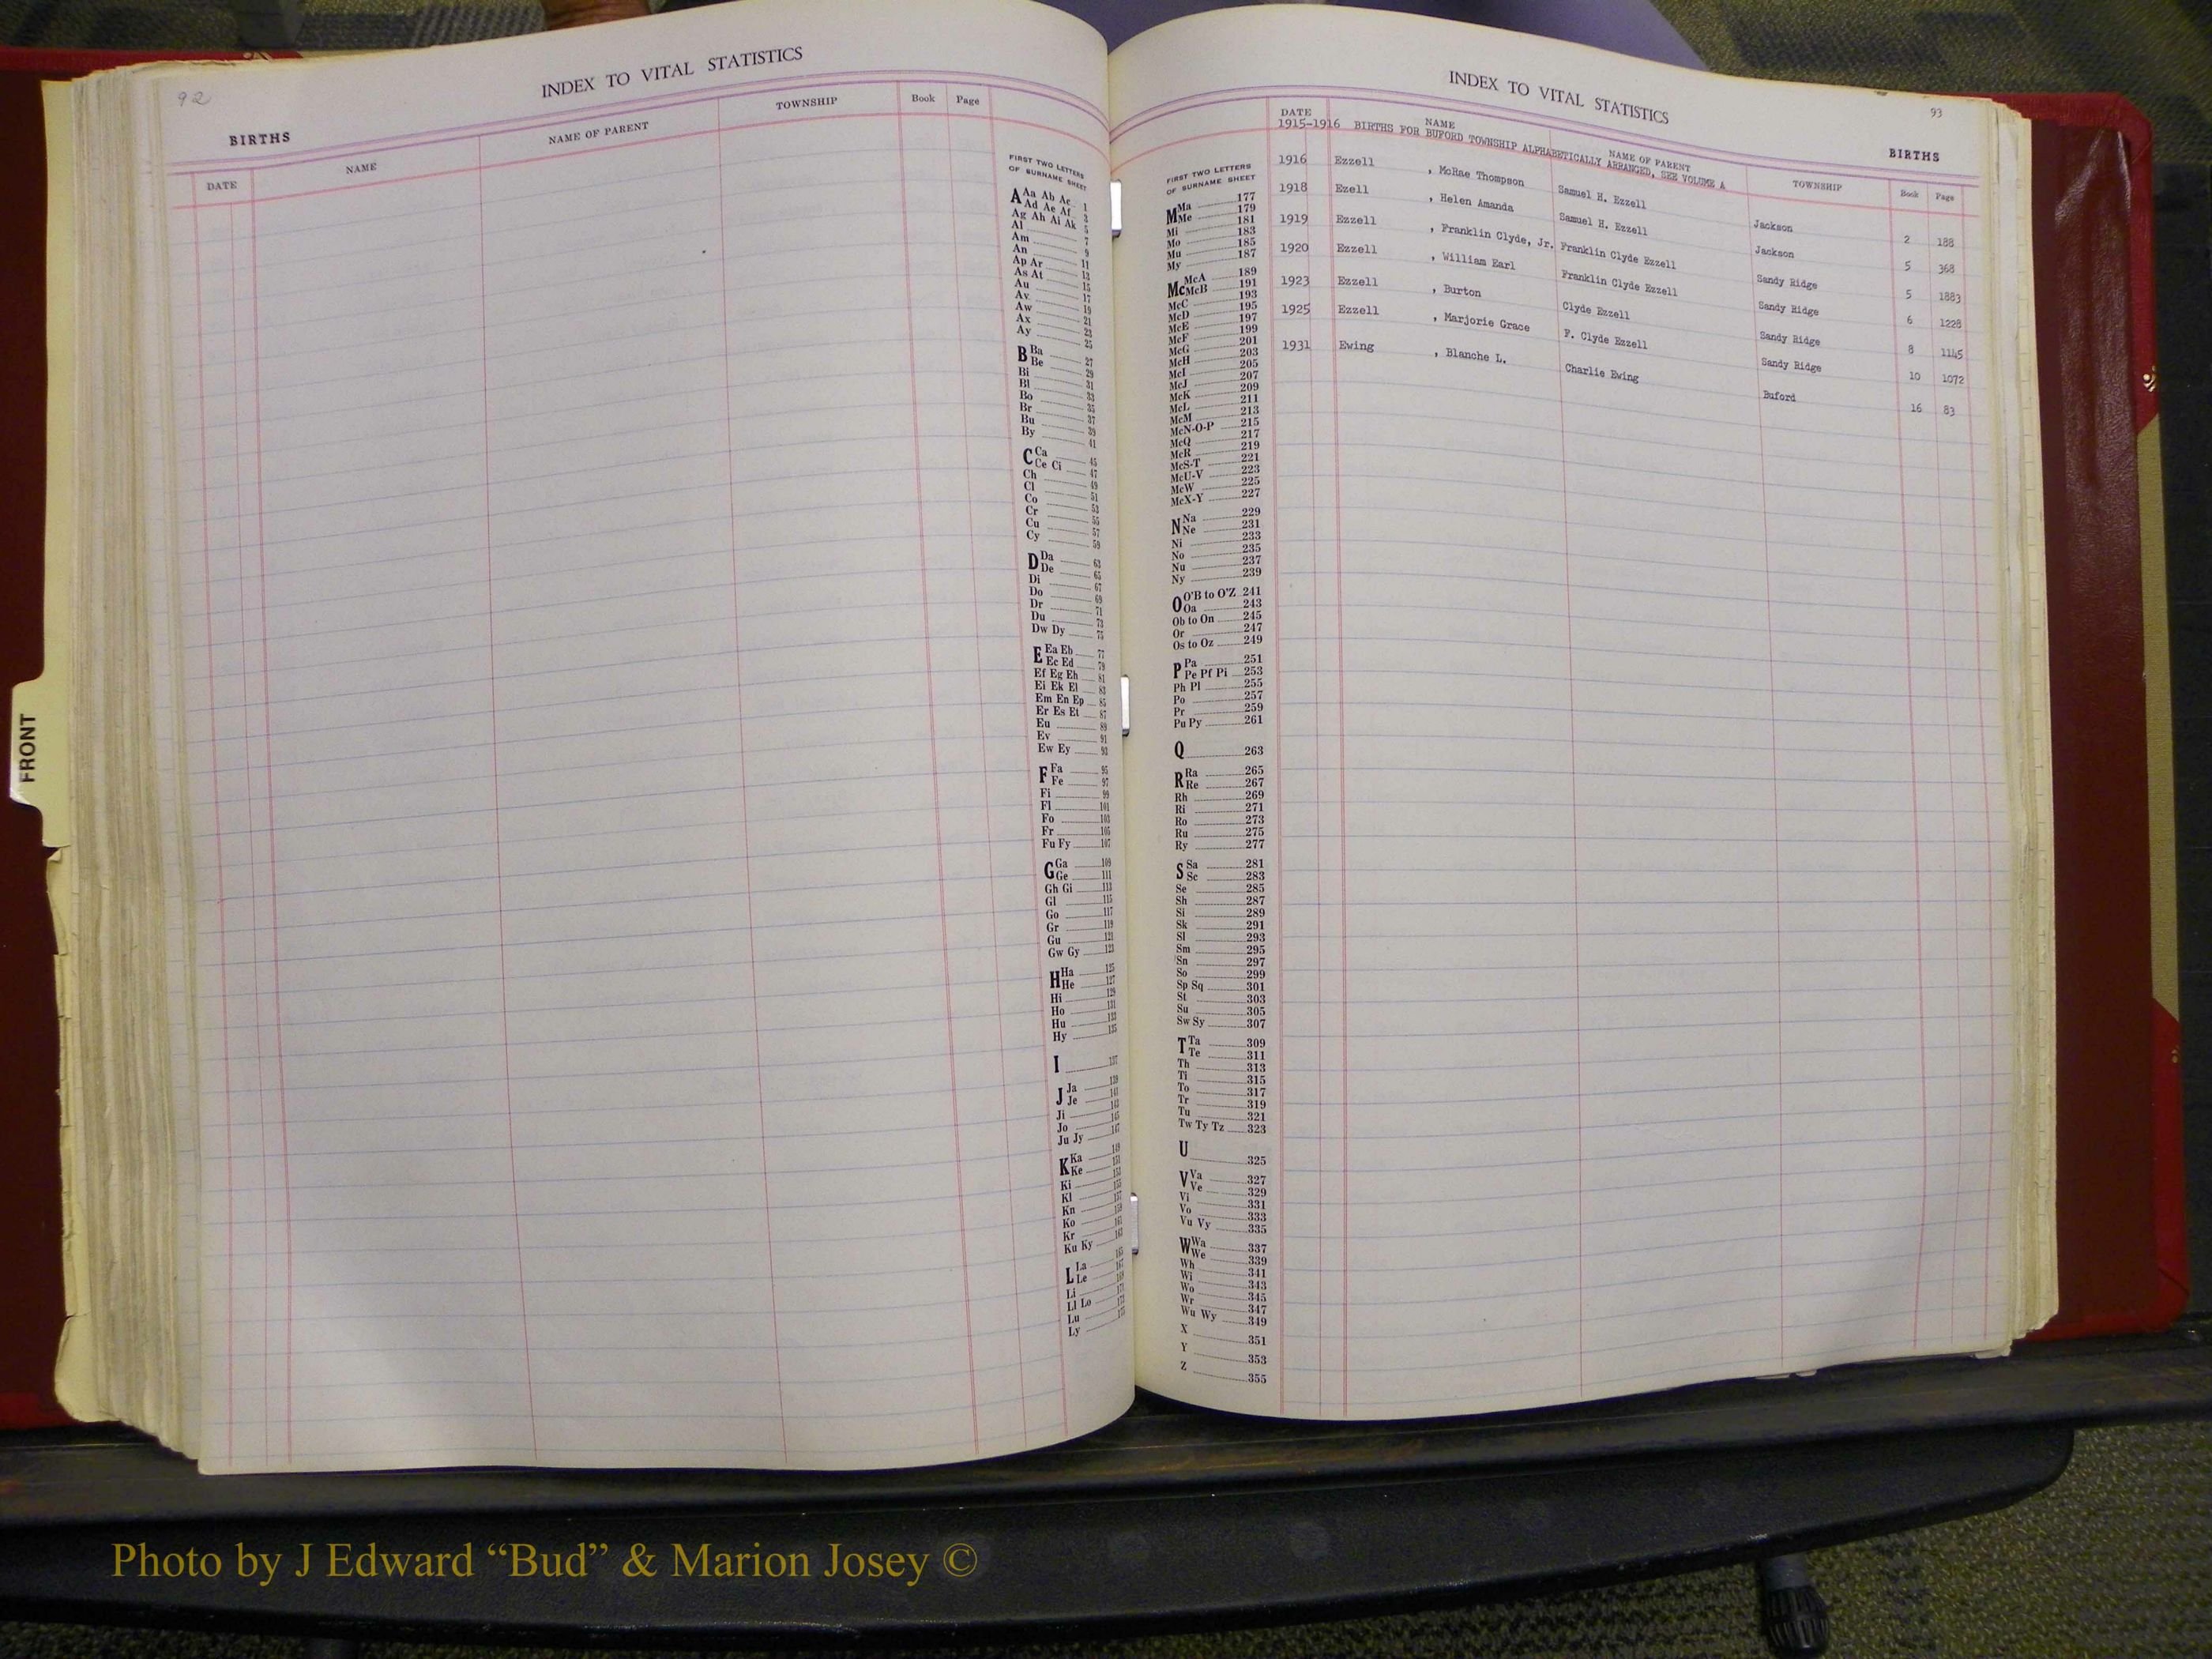 92
INDEX TO VITAL STATISTICS
BIRTHS
DATE NAME NAME OF PARENT TOWNSHIP Book Page
FIRST TWO LETTERS
OF SURNAME SHEET
A Aa Ab Ac 1
Ad Ae Af 3
Ag Ah Ai Ak 5
Al 7
Am 9
An 11
Ap Ar 13
As At 15
Au 17
Av 19
Aw 21
Ax 23
Ay 25
B Ba 27
Be 29
Bi 31
Bl 33
Bo 35
Br 37
Bu 39
By 41
C Ca 45
Ce Ci 47
Ch 49
Cl 51
Co 53
Cr 55
Cu 57
Cy 59
D Da 63
De 65
Di 67
Do 69
Dr 71
Du 73
Dw Dy 75
E Ea Eb 77
Ec Ed 79
Ef Eg Eh 81
Ei Ek El 83
Em En Ep 85
Er Es Et 87
Eu 89
Ev 91
Ew Ey 93
F Fa 95
Fe 97
Fi 99
Fl 101
Fo 103
Fr 105
Fu Fy 107
G Ga 109
Ge 111
Gh Gi 113
Gl 115
Go 117
Gr 119
Gu 121
Gw Gy 123
H Ha 125
He 127
Hi 129
Ho 131
Hu 133
Hy 135
I 137
J Ja 139
Je 141
Ji 143
Jo 145
Ju Jy 147
K Ka 149
Ke 151
Ki 153
Kl 155
Kn 157
Ko 159
Kr 161
Ku Ky 163
L La 165
Le 167
Li 169
Ll Lo 171
Lu 173
Ly 175
INDEX TO VITAL STATISTICS
93
BIRTHS
DATE NAME NAME OF PARENT TOWNSHIP Book Page
1915-1916 BIRTHS FOR BUFORD TOWNSHIP ALPHABETICALLY ARRANGED, SEE VOLUME A
1916 Ezzell , McRae Thompson Samuel H. Ezzell Jackson 2 188
1918 Ezell , Helen Amanda Samuel H. Ezzell Jackson 5 368
1919 Ezzell , Franklin Clyde, Jr. Franklin Clyde Ezzell Sandy Ridge 5 1883
1920 Ezzell , William Earl Franklin Clyde Ezzell Sandy Ridge 6 1228
1923 Ezzell , Burton Clyde Ezzell Sandy Ridge 8 1145
1925 Ezzell , Marjorie Grace F. Clyde Ezzell Sandy Ridge 10 1072
1931 Ewing , Blanche L. Charlie Ewing Buford 16 83
FIRST TWO LETTERS
OF SURNAME SHEET
M Ma 177
Me 179
Mi 181
Mo 183
Mu 185
My 187
Mc McA 189
McB 191
McC 193
McD 195
McE 197
McF 199
McG 201
McH 203
McI 205
McJ 207
McK 209
McL 211
McM 213
McN-O-P 215
McQ 217
McR 219
McS-T 221
McU-V 223
McW 225
McX-Y 227
N Na 229
Ne 231
Ni 233
No 235
Nu 237
Ny 239
O O'B to O'Z 241
Oa 243
Ob to On 245
Or 247
Os to Oz 249
P Pa 251
Pe Pf Pi 253
Ph Pl 255
Po 257
Pr 259
Pu Py 261
Q 263
R Ra 265
Re 267
Rh 269
Ri 271
Ro 273
Ru 275
Ry 277
S Sa 281
Sc 283
Se 285
Sh 287
Si 289
Sk 291
Sl 293
Sm 295
Sn 297
So 299
Sp Sq 301
St 303
Su 305
Sw Sy 307
T Ta 309
Te 311
Th 313
Ti 315
To 317
Tr 319
Tu 321
Tw Ty Tz 323
U 325
V Va 327
Ve 329
Vi 331
Vo 333
Vu Vy 335
W Wa 337
We 339
Wh 341
Wi 343
Wo 345
Wr 347
Wu Wy 349
X 351
Y 353
Z 355
FRONT
Photo by J Edward “Bud” & Marion Josey ©